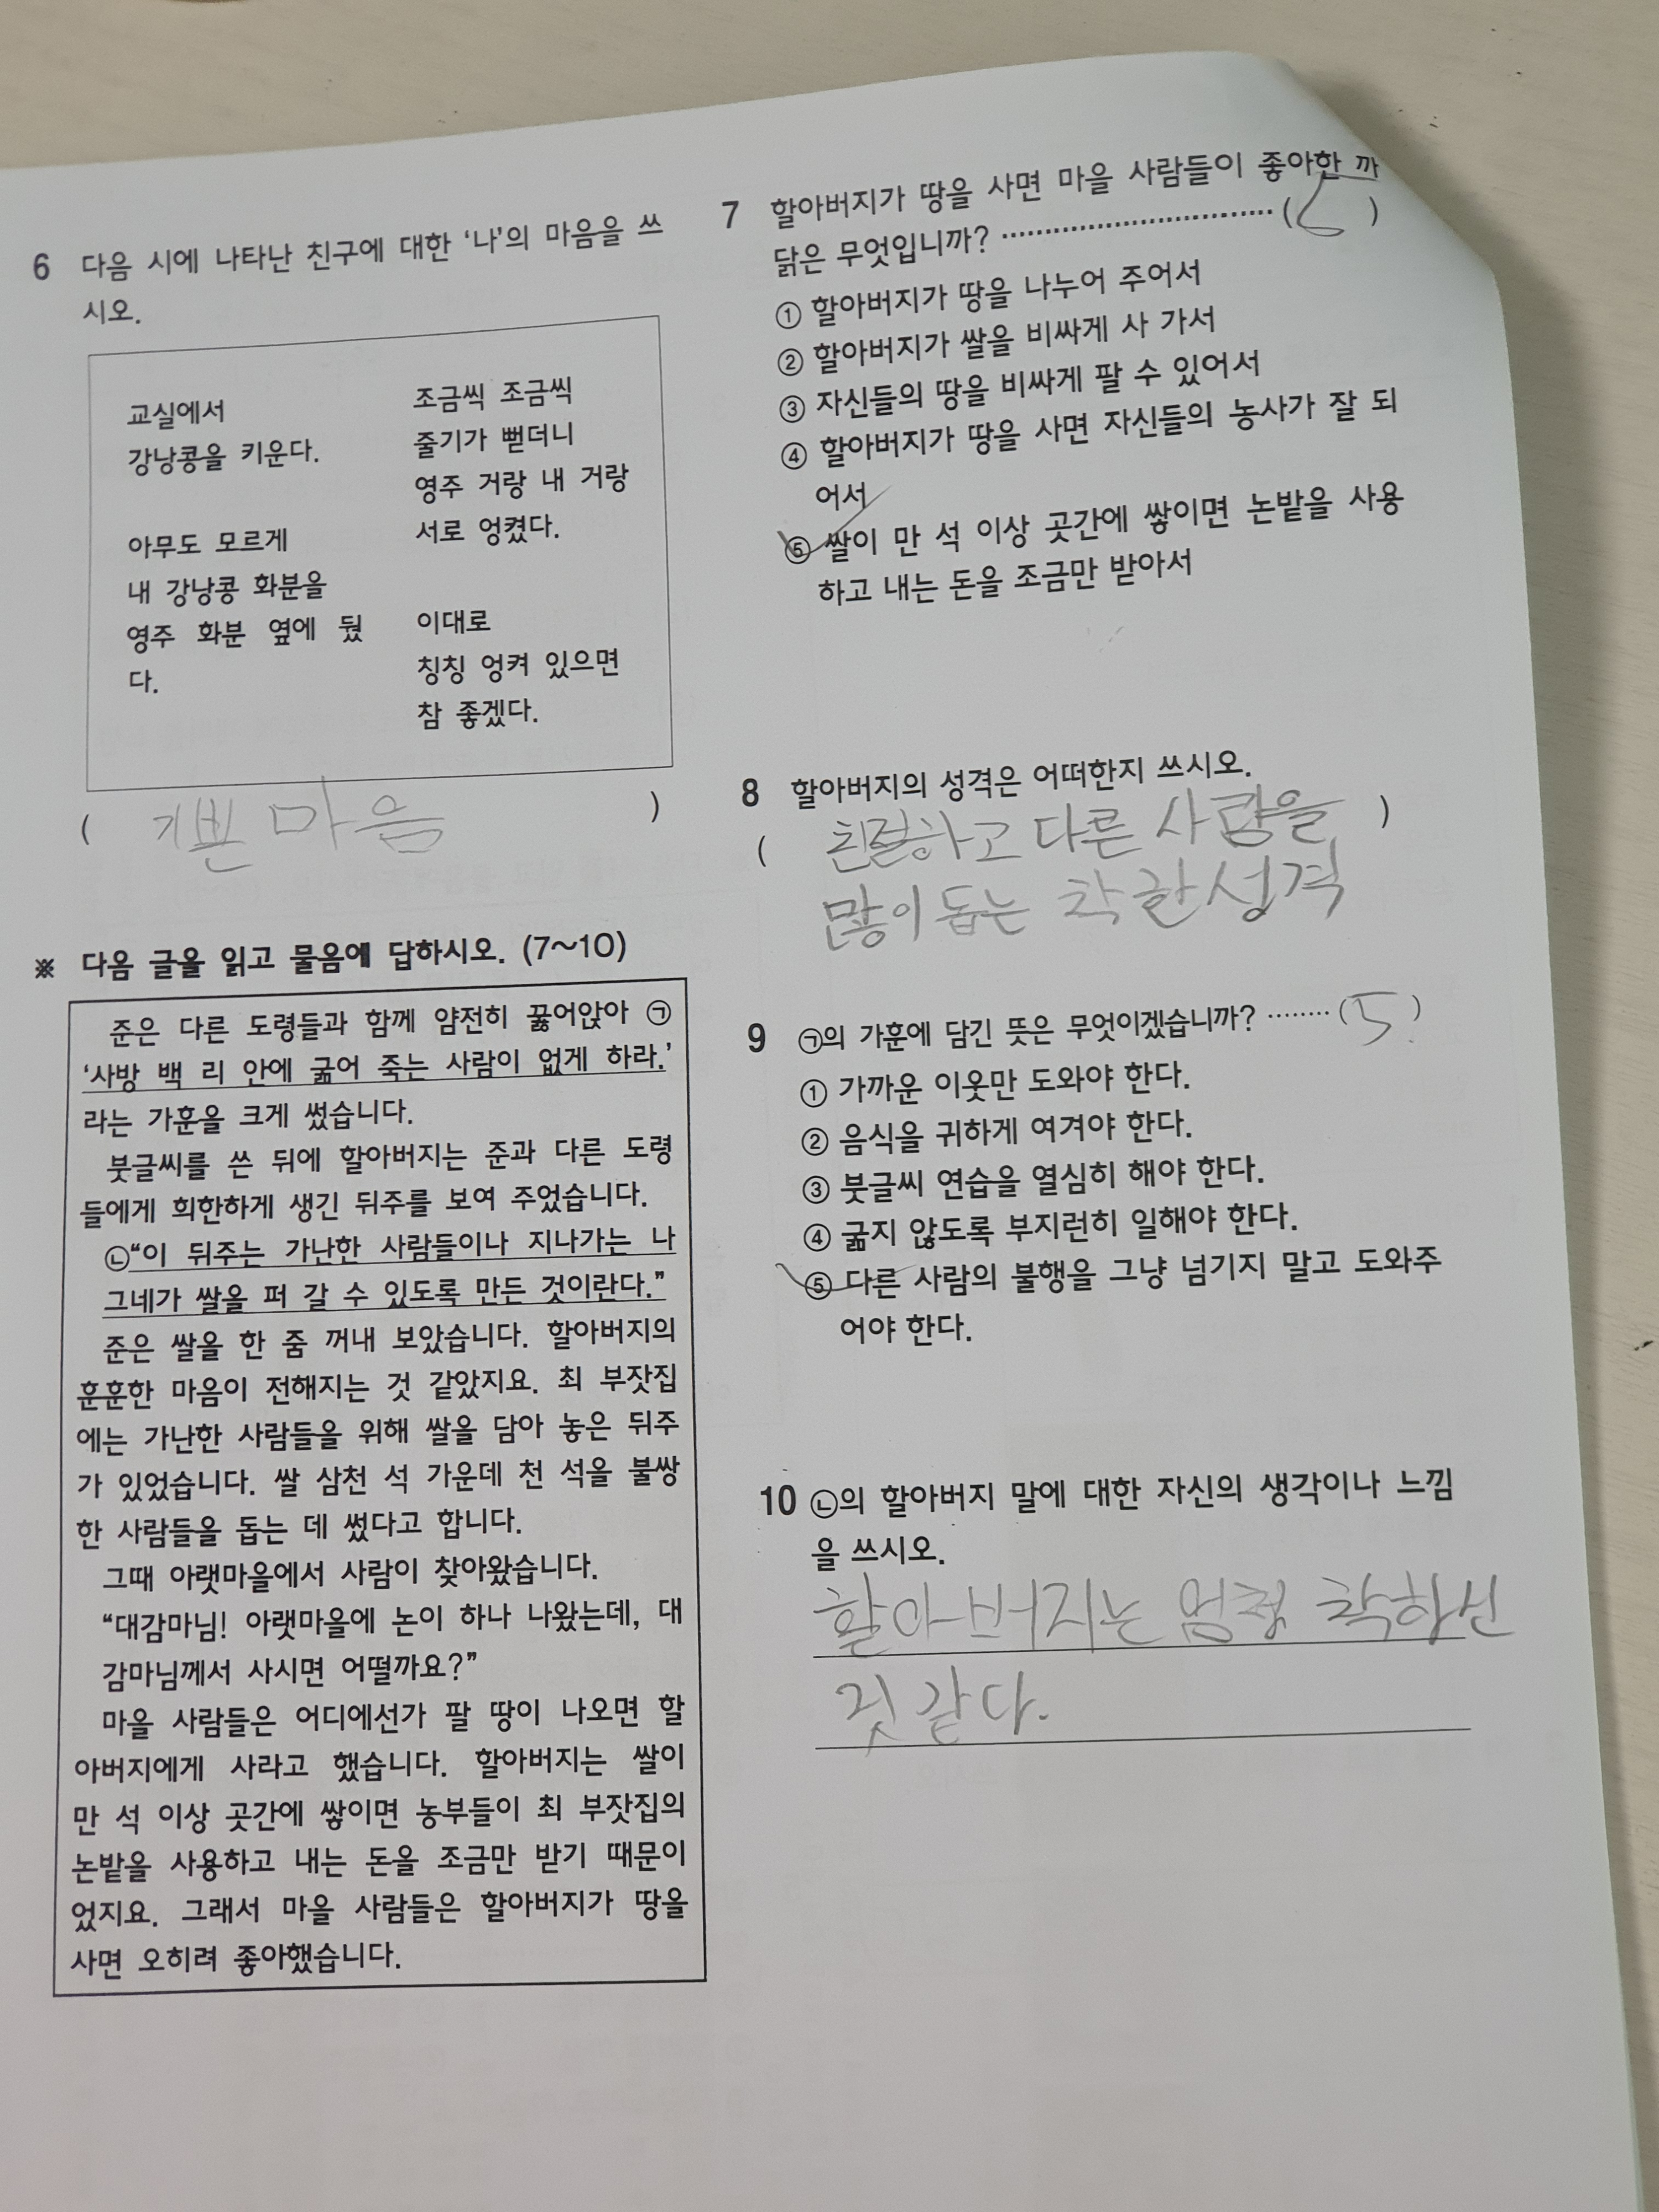 6 다음 시에 나타난 친구에 대한 ‘나’의 마음을 쓰
시오.
교실에서
강낭콩을 키운다.
아무도 모르게
내 강낭콩 화분을
영주 화분 옆에 뒀
다.
조금씩 조금씩
줄기가 뻗더니
영주 거랑 내 거랑
서로 엉켰다.
이대로
칭칭 엉켜 있으면
참 좋겠다.
( 기쁜 마음 )
※ 다음 글을 읽고 물음에 답하시오. (7~10)
준은 다른 도령들과 함께 얌전히 꿇어앉아 ㉠
‘사방 백 리 안에 굶어 죽는 사람이 없게 하라.’
라는 가훈을 크게 썼습니다.
붓글씨를 쓴 뒤에 할아버지는 준과 다른 도령
들에게 희한하게 생긴 뒤주를 보여 주었습니다.
㉡“이 뒤주는 가난한 사람들이나 지나가는 나
그네가 쌀을 퍼 갈 수 있도록 만든 것이란다.”
준은 쌀을 한 줌 꺼내 보았습니다. 할아버지의
훈훈한 마음이 전해지는 것 같았지요. 최 부잣집
에는 가난한 사람들을 위해 쌀을 담아 놓은 뒤주
가 있었습니다. 쌀 삼천 석 가운데 천 석을 불쌍
한 사람들을 돕는 데 썼다고 합니다.
그때 아랫마을에서 사람이 찾아왔습니다.
“대감마님! 아랫마을에 논이 하나 나왔는데, 대
감마님께서 사시면 어떨까요?”
마을 사람들은 어디에선가 팔 땅이 나오면 할
아버지에게 사라고 했습니다. 할아버지는 쌀이
만 석 이상 곳간에 쌓이면 농부들이 최 부잣집의
논밭을 사용하고 내는 돈을 조금만 받기 때문이
었지요. 그래서 마을 사람들은 할아버지가 땅을
사면 오히려 좋아했습니다.
7 할아버지가 땅을 사면 마을 사람들이 좋아한 까
닭은 무엇입니까? ······························( 5 )
① 할아버지가 땅을 나누어 주어서
② 할아버지가 쌀을 비싸게 사 가서
③ 자신들의 땅을 비싸게 팔 수 있어서
④ 할아버지가 땅을 사면 자신들의 농사가 잘 되
어서
⑤ 쌀이 만 석 이상 곳간에 쌓이면 논밭을 사용
하고 내는 돈을 조금만 받아서
8 할아버지의 성격은 어떠한지 쓰시오.
( 친절하고 다른 사람을 )
많이 돕는 착한 성격
9 ㉠의 가훈에 담긴 뜻은 무엇이겠습니까? ········( 5 )
① 가까운 이웃만 도와야 한다.
② 음식을 귀하게 여겨야 한다.
③ 붓글씨 연습을 열심히 해야 한다.
④ 굶지 않도록 부지런히 일해야 한다.
⑤ 다른 사람의 불행을 그냥 넘기지 말고 도와주
어야 한다.
10 ㉡의 할아버지 말에 대한 자신의 생각이나 느낌
을 쓰시오.
할아버지는 엄청 착하신
것 같다.